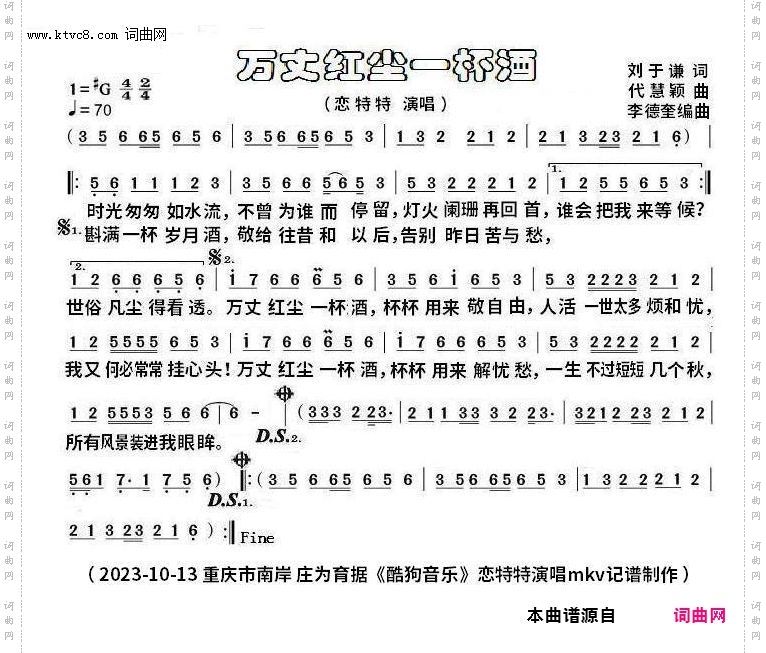 www.ktvc8.com 词曲网
万丈红尘一杯酒
1=#G 4/4 2/4
♩=70
(恋特特 演唱)
刘于谦 词
代慧颖 曲
李德奎编曲
(3 5 6 65 6 5 6 | 3 5 6 56 5 3 | 1 3 2 2 1 2 | 2 1 3 23 2 1 6)
‖: 5 6 1 1 1 2 3 | 3 5 6 56 5 6 5 3 | 5 3 2 2 2 1 2 | 1. 1 2 5 5 6 5 3 :‖
时光匆匆 如水流, 不曾为谁而 停留, 灯火 阑珊再回首, 谁会把我来等候?
1. 斟满一杯 岁月酒, 敬给往昔和 以后, 告别 昨日苦与愁,
2. 1 2 6 6 6 5 6 | 2. 1 7 6 6 6 5 6 | 3 5 6 1 6 5 3 | 5 3 2223 2 1 2 |
世俗 凡尘 得看透。万丈 红尘 一杯酒, 杯杯 用来 敬自由, 人活 一世太多 烦和忧,
1 2 5555 6 5 3 | 1 7 6 6 6 5 6 | 1 7 6 6 6 5 3 | 5 3 2223 2 1 2 |
我又 何必常常 挂心头! 万丈 红尘 一杯 酒, 杯杯 用来 解忧愁, 一生 不过短短 几个秋,
1 2 5553 5 6 6 | 6 - | (333 2 23· | 2 11 33 3 2 23· | 3212 23 2 1 2 |
所有风景装进我眼眸。
D.S.2.
561 7· 1 7 5 6) ‖:(3 5 6 65 6 5 6 | 3 5 6 56 5 3 | 1 3 2 2 2 1 2 |
D.S.1.
2 1 3 23 2 1 6 ):‖ Fine
(2023-10-13 重庆市南岸 庄为育据《酷狗音乐》恋特特演唱mkv记谱制作)
本曲谱源自 词曲网